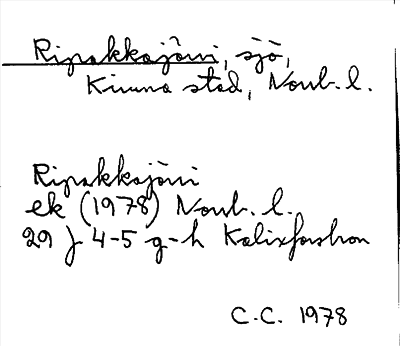 Ripakkajärvi, sjö,
Kiruna stad, Norrb. l.
Ripakkajärvi
ek (1978) Norrb. l.
29 J 4-5 g-h Kalixforsbron
C.C. 1978